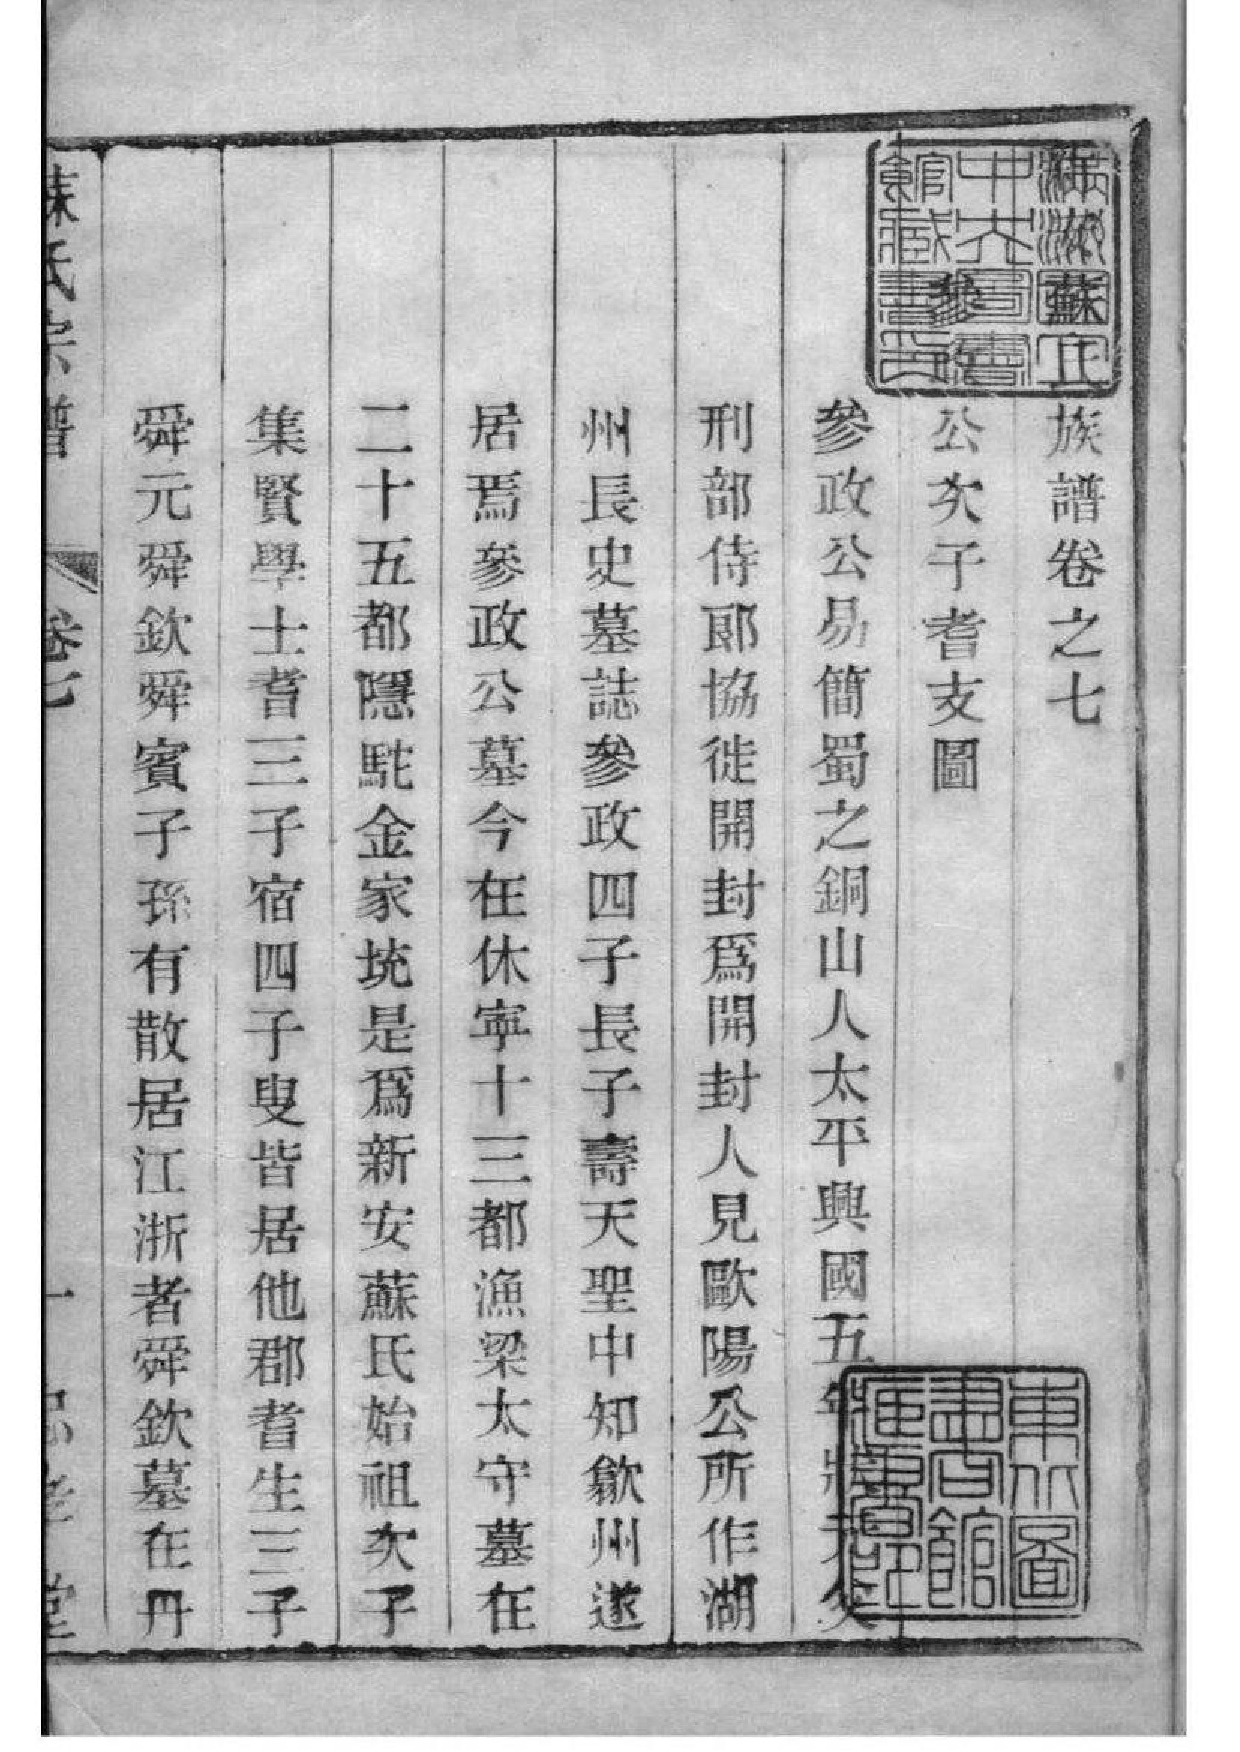 蘇氏族譜卷之七
參公次子耆支圖
參政公易簡蜀之銅山人太平興國五年狀元父
刑部侍郎協徙開封爲開封人見歐陽公所作湖
州長史墓誌參政四子長子壽天聖中知歙州遂
居焉參政公墓今在休寧十三都漁梁太守墓在
二十五都隱駝金家坑是爲新安蘇氏始祖次子
集賢學士耆三子宿四子叟皆居他郡耆生三子
舜元舜欽舜賓子孫有散居江浙者舜欽墓在丹
蘇氏宗譜 卷七 一 堂
東北圖書館藏書印